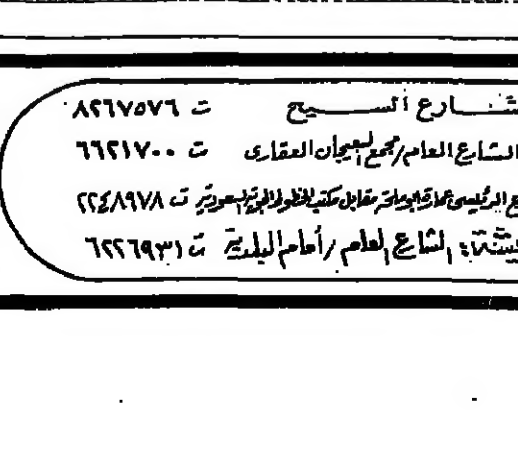 شارع السيح ت ٨٢٦٧٥٧٦
الشارع العام/مجمع العجيان العقارى ت ٦٦٢١٧٠٠
الرئيسى عمارة مقابل مكتب الخطوط الجوية السعودية ت ٢٢٤٨٩٧٨
بيشة: الشارع العام/أمام البلدية ت ٦٢٢٦٩٣١